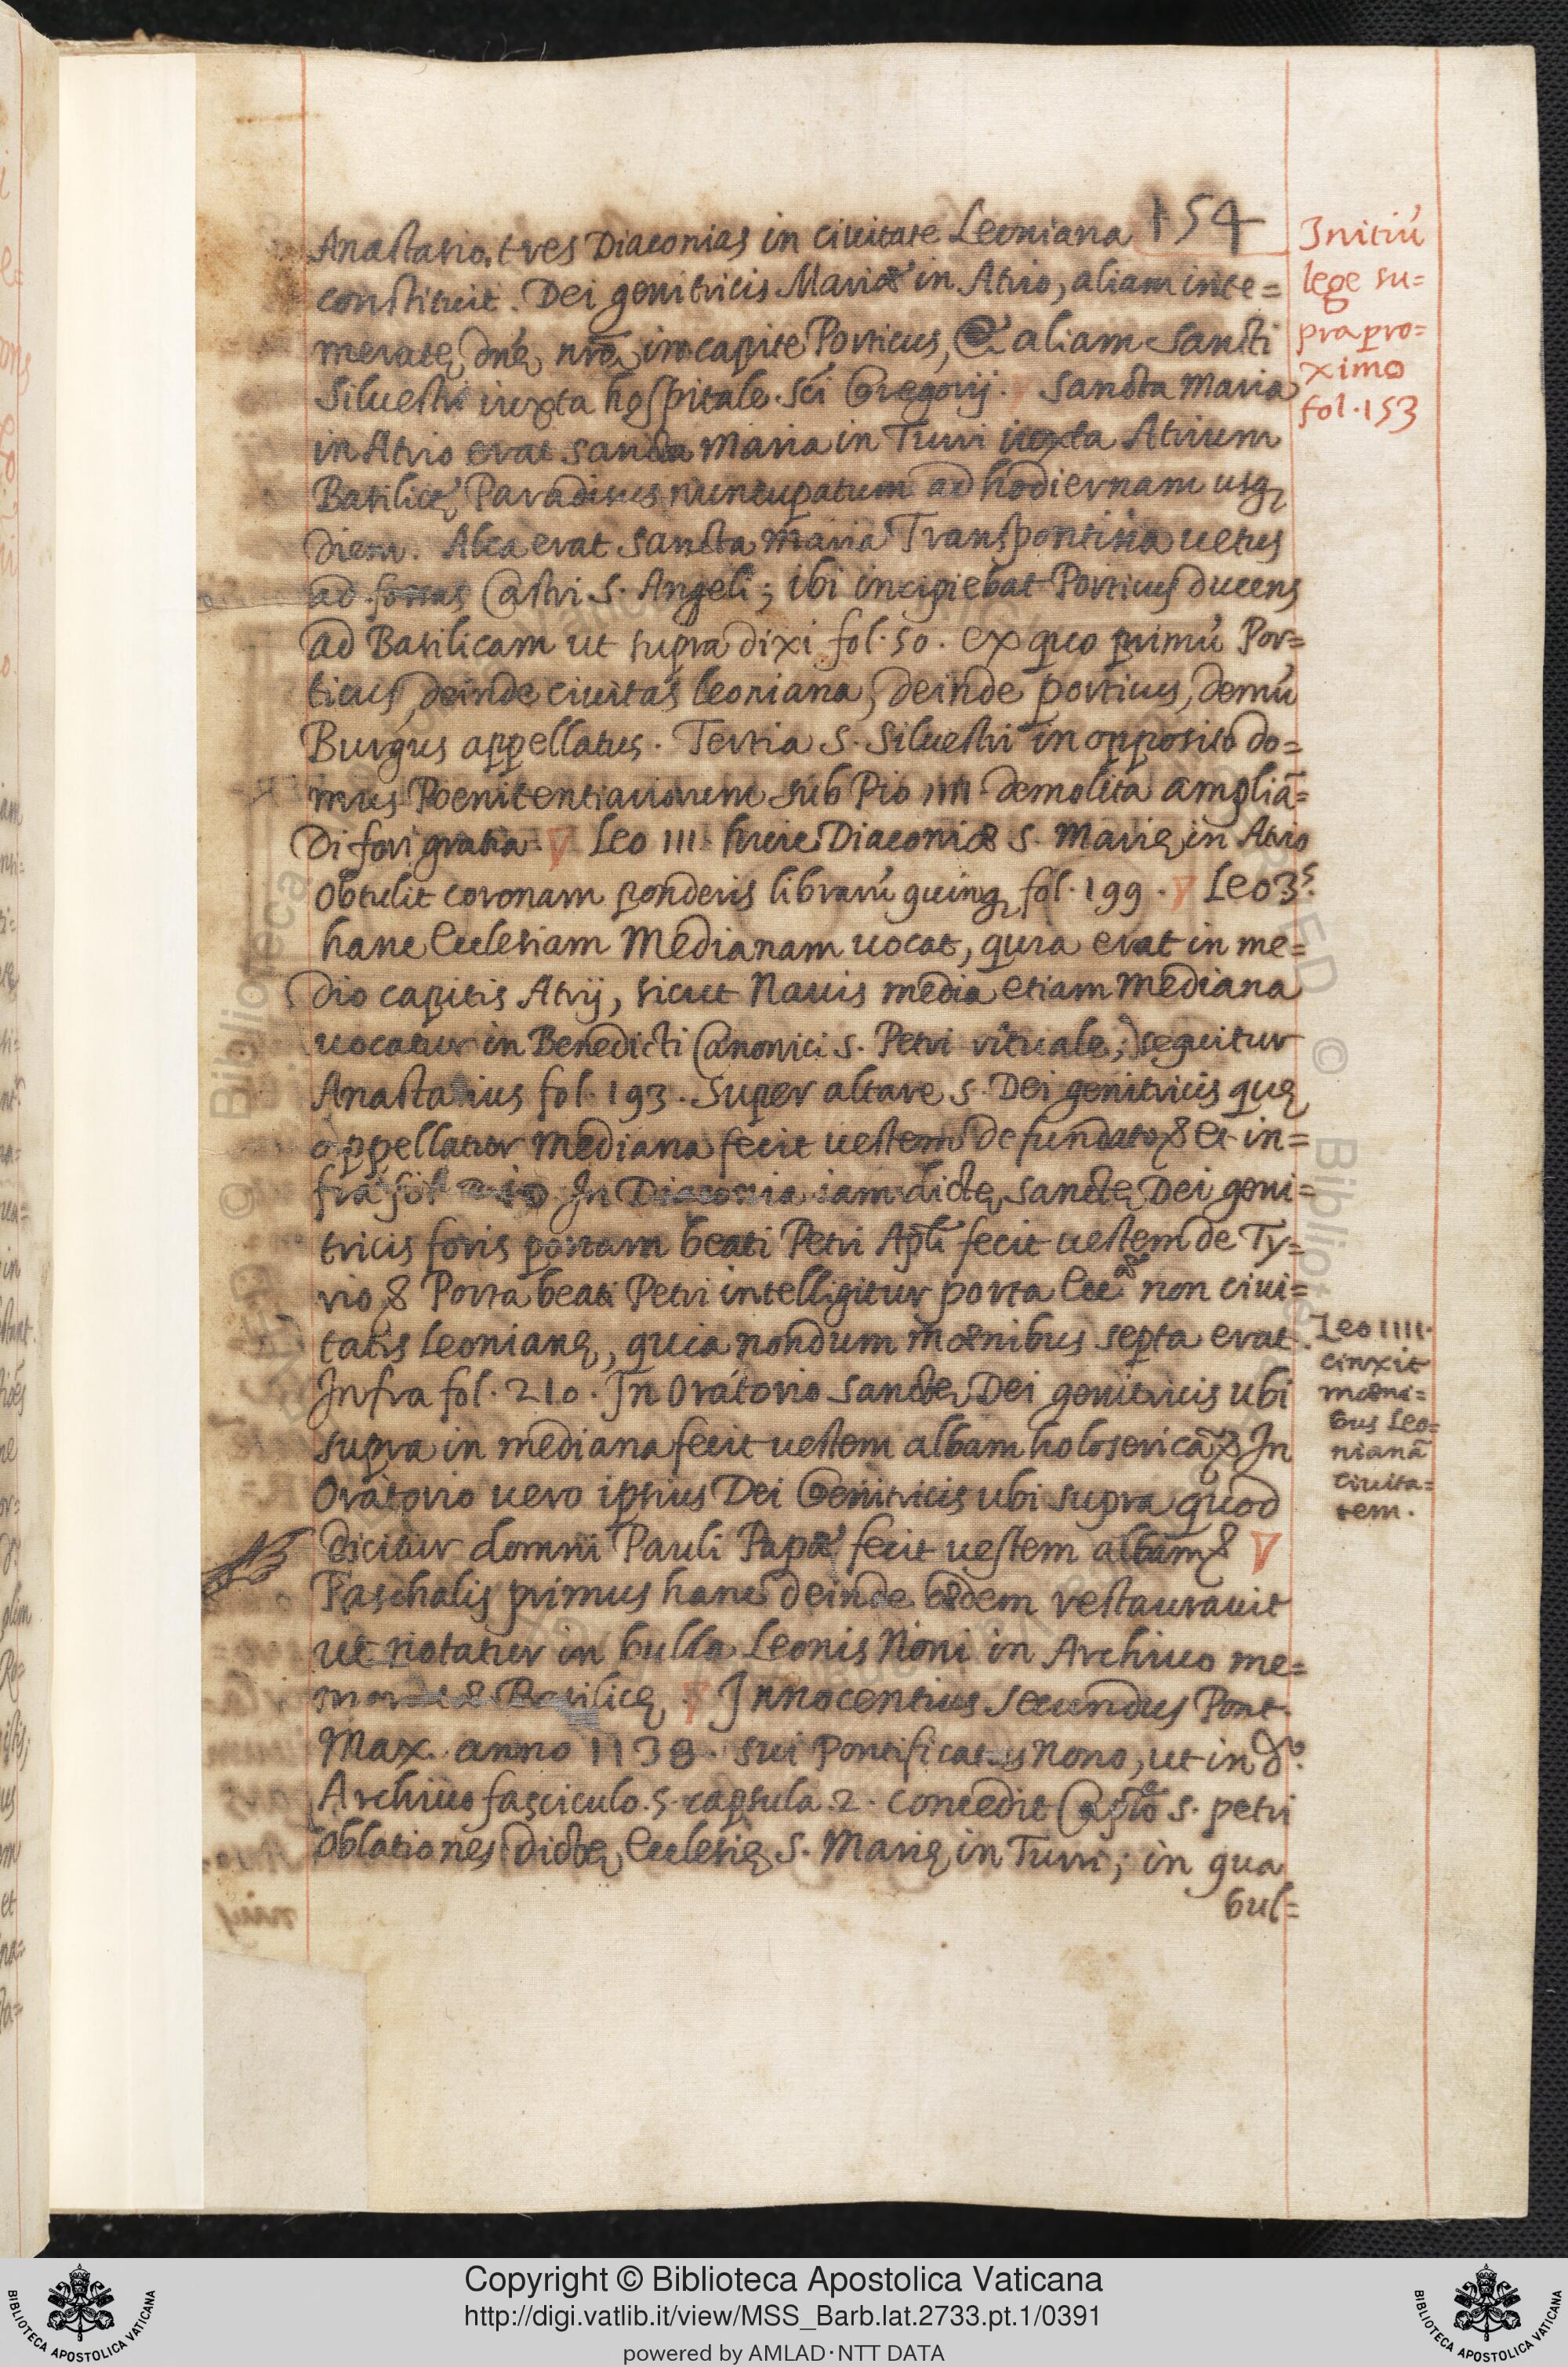 154
Anastasio. tres Diaconias in ciuitate Leoniana
constituit. Dei genitricis Mariæ in Atrio, aliam inte=
meratę dnę nrę in capite Porticus, & aliam Sancti
Siluestri iuxta hospitale Sci Gregorij. Sancta Maria
in Atrio erat Sancta Maria in Turri iuxta Atrium
Basilicę Paradisus nuncupatum ad hodiernam usq
diem. Alia erat Sancta Maria Transpontina uetus
ad fossas Castri S. Angeli; ibi incipiebat Porticus ducens
ad Basilicam ut supra dixi fol. 50. ex quo primũ Por=
ticus, deinde ciuitas leoniana, deinde porticus, demũ
Burgus appellatus. Tertia S. Siluestri in opposito do=
mus Poenitentiariorum sub Pio IIII demolita ampliã=
di fori gratia. Leo III. huic Diaconiæ S. Marię in Atrio
obtulit coronam ponderis librarũ quinq fol. 199. Leo 3s.
hanc Ecclesiam Medianam uocat, quia erat in me=
dio capitis Atrij, sicut Nauis media etiam Mediana
uocatur in Benedicti Canonici S. Petri rituale; sequitur
Anastasius fol. 193. Super altare S. Dei genitricis quę
appellatur Mediana fecit uestem de fundato & et in=
fra fol 210 In Diaconia iam dictę Sanctę Dei geni=
tricis foris portam beati Petri Apli fecit uestem de Ty=
rio & Porta beati Petri intelligitur porta Eccæ non ciui=
tatis Leonianę, quia nondum mœnibus septa erat.
Infra fol. 210. In Oratorio Sanctę Dei genitricis ubi
supra in mediana fecit uestem albam holosericã & In
Oratorio uero ipsius Dei Genitricis ubi supra quod
dicitur domni Pauli Papæ fecit uestem albam &
Paschalis primus hanc deinde ædem restaurauit
ut notatur in bulla Leonis Noni in Archiuo me=
moratæ Basilicę. Innocentius Secundus Pont.
Max. anno 1138. sui Pontificatus Nono, ut in do.
Archiuo fasciculo. 5. capsula. 2. concedit Caplo S. petri
oblationes dictę Ecclesię S. Marię in Turri; in qua
bul=
Initiũ
lege su=
pra pro=
ximo
fol. 153
Leo IIII.
cinxit
mœni=
bus Leo=
nianã
ciuita=
tem.
Copyright © Biblioteca Apostolica Vaticana
http://digi.vatlib.it/view/MSS_Barb.lat.2733.pt.1/0391
powered by AMLAD·NTT DATA
BIBLIOTECA APOSTOLICA VATICANA
BIBLIOTECA APOSTOLICA VATICANA